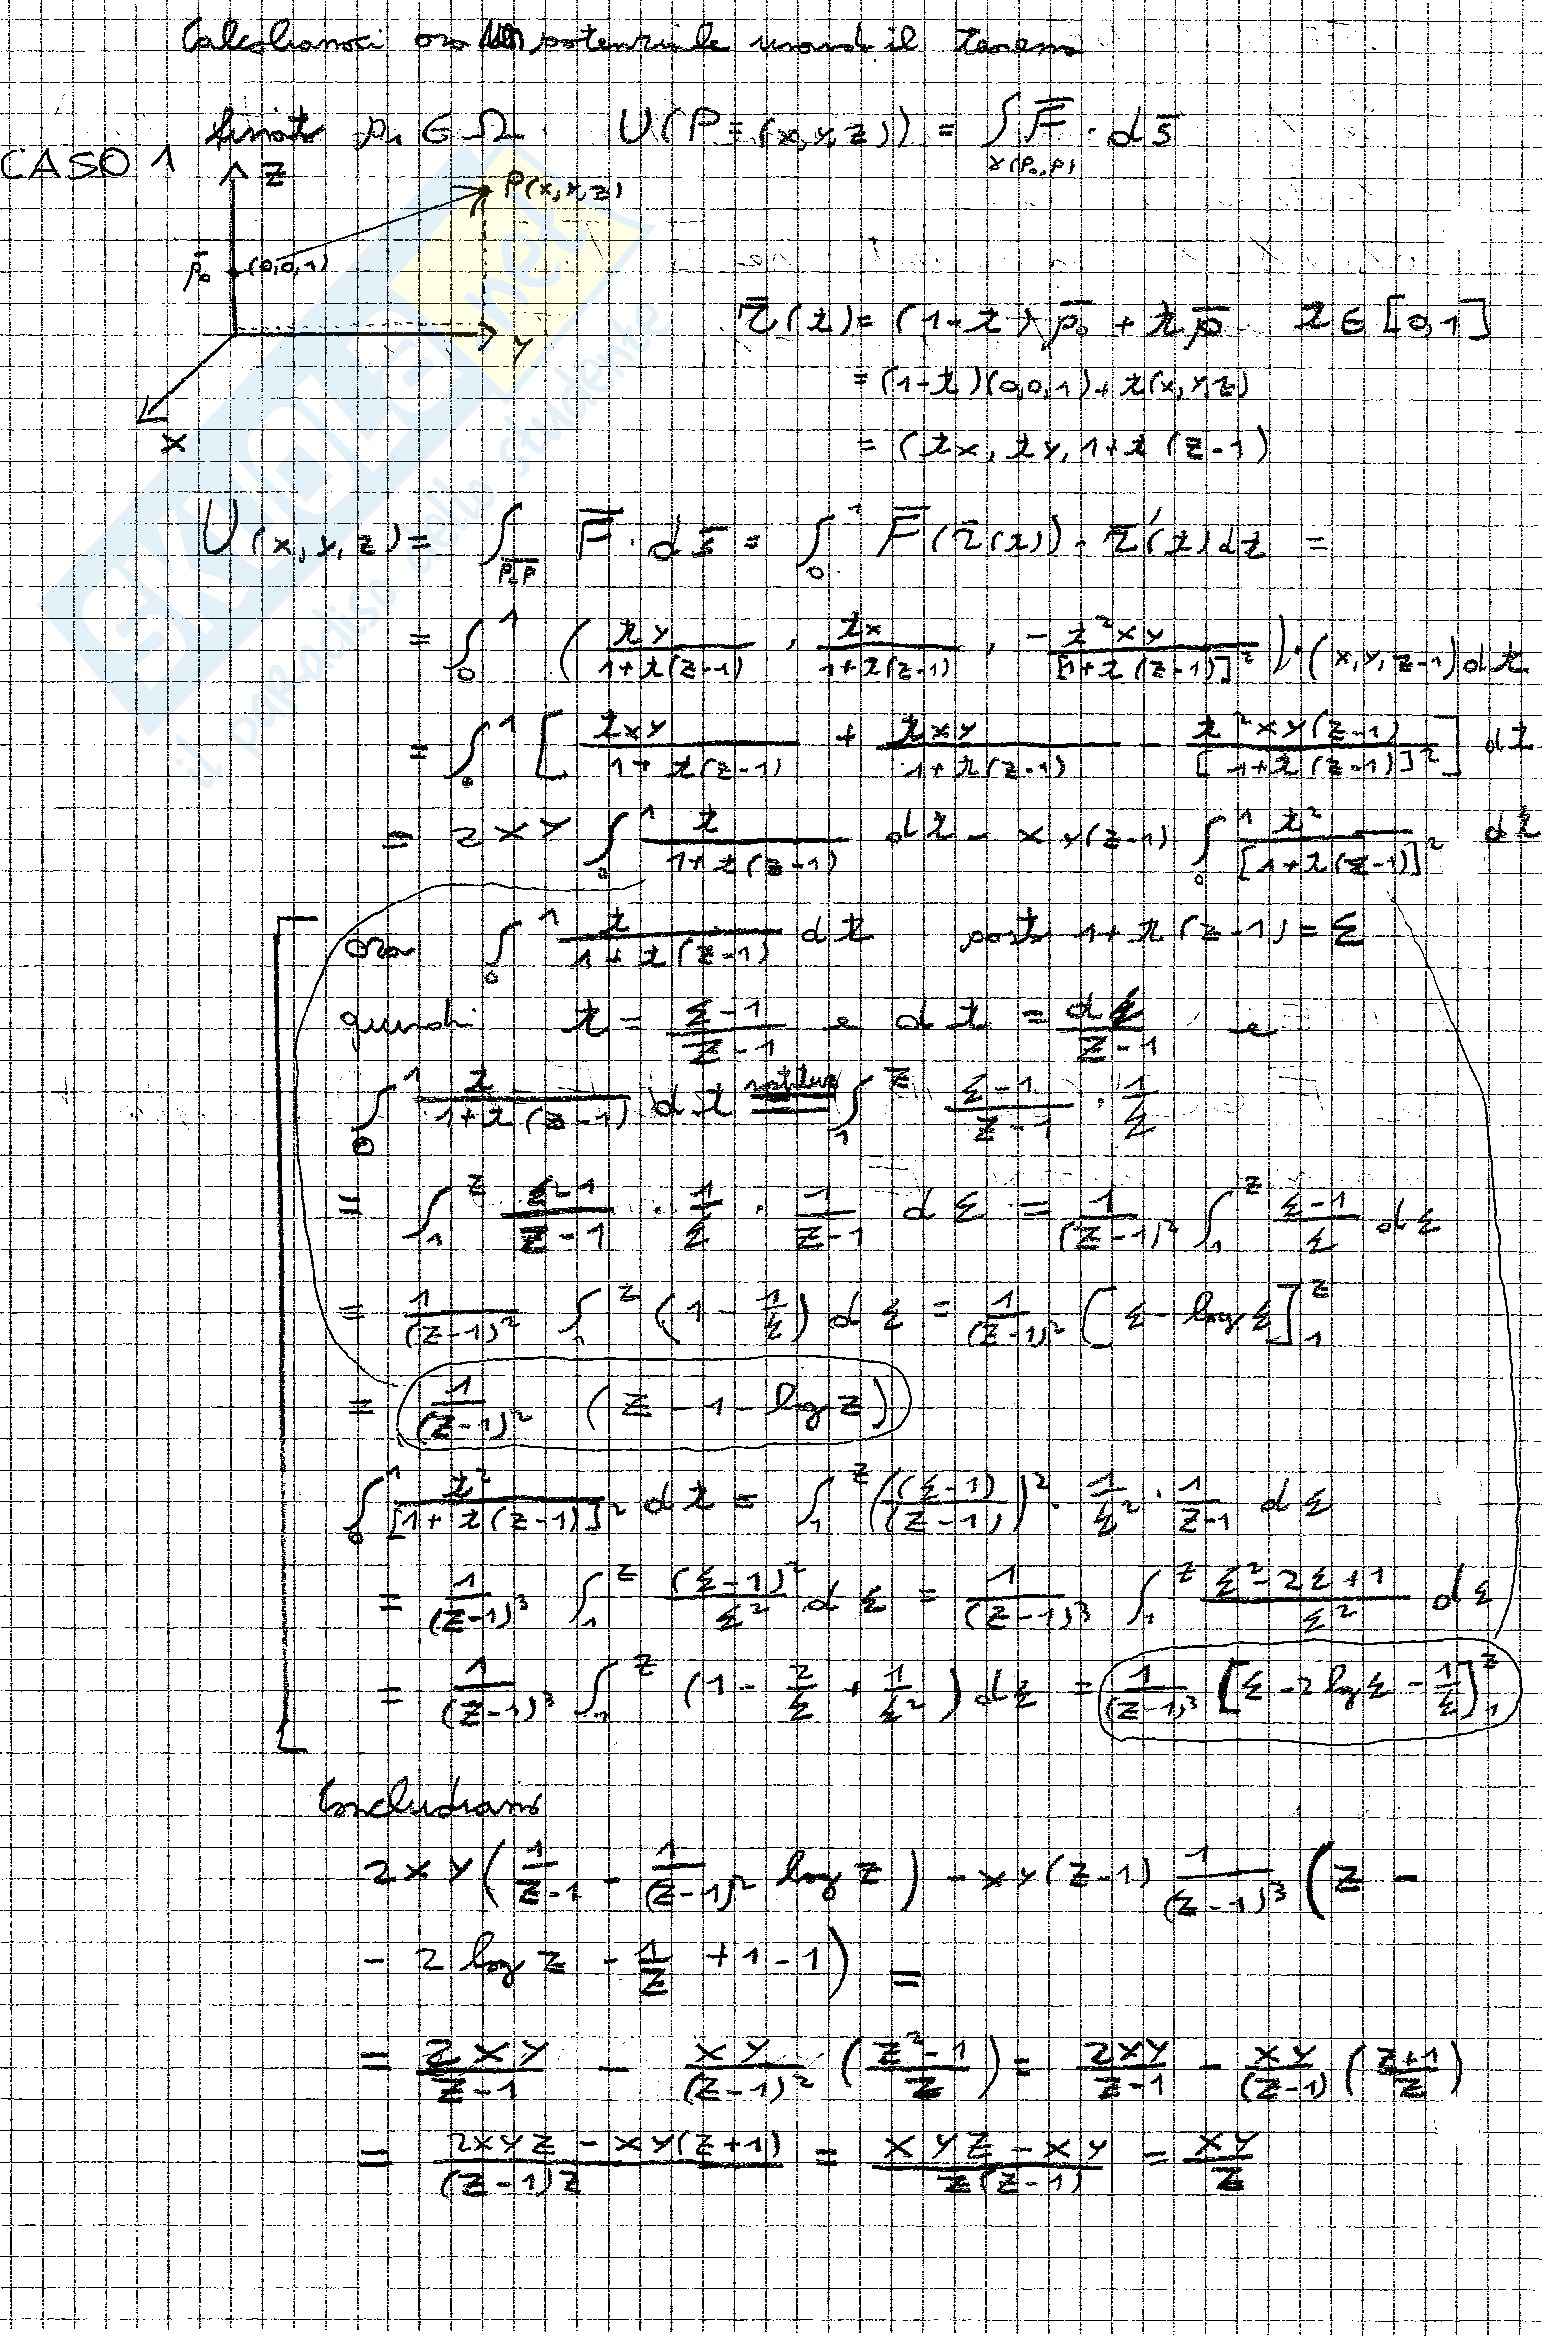 Calcoliamoci ora un potenziale usando il teorema
fissato p₀ ∈ Ω U(P=(x,y,z)) = ∫_{γ(P₀,P)} F̄ · ds̄
CASO 1
Z
P(x,y,z)
p̄₀ (0,0,1)
y
x
r̄(t) = (1-t) p̄₀ + t p̄ t ∈ [0,1]
= (1-t)(0,0,1) + t(x,y,z)
= (tx, ty, 1+t(z-1)
U(x,y,z) = ∫_{P₀P} F̄ · ds̄ = ∫₀¹ F̄(r̄(t)) · r̄'(t) dt =
= ∫₀¹ ( ty/(1+t(z-1)) , tx/(1+t(z-1)) , - t²xy/[1+t(z-1)]² ) · (x,y,z-1) dt
= ∫₀¹ [ txy/(1+t(z-1)) + txy/(1+t(z-1)) - t²xy(z-1)/[1+t(z-1)]² ] dt
= 2xy ∫₀¹ t/(1+t(z-1)) dt - xy(z-1) ∫₀¹ t²/[1+t(z-1)]² dt
ora ∫₀¹ t/(1+t(z-1)) dt posto 1+t(z-1) = ξ
quindi t = (ξ-1)/(z-1) e dt = dξ/(z-1) e
∫₀¹ t/(1+t(z-1)) dt = ∫₁^z (ξ-1)/(z-1) · 1/ξ
= ∫₁^z (ξ-1)/(z-1) · 1/ξ · 1/(z-1) dξ = 1/(z-1)² ∫₁^z (ξ-1)/ξ dξ
= 1/(z-1)² ∫₁^z (1 - 1/ξ) dξ = 1/(z-1)² [ξ - log ξ]₁^z
= 1/(z-1)² (z - 1 - log z)
∫₀¹ t²/[1+t(z-1)]² dt = ∫₁^z ((ξ-1)/(z-1))² · 1/ξ² · 1/(z-1) dξ
= 1/(z-1)³ ∫₁^z (ξ-1)²/ξ² dξ = 1/(z-1)³ ∫₁^z (ξ²-2ξ+1)/ξ² dξ
= 1/(z-1)³ ∫₁^z (1 - 2/ξ + 1/ξ²) dξ = 1/(z-1)³ [ξ - 2 log ξ - 1/ξ]₁^z
Concludiamo
2xy(1/(z-1) - 1/(z-1)² log z) - xy(z-1) 1/(z-1)³ (z -
- 2 log z - 1/z + 1 - 1) =
= 2xy/(z-1) - xy/(z-1)² ((z²-1)/z) = 2xy/(z-1) - xy/(z-1) ((z+1)/z)
= (2xyz - xy(z+1))/((z-1)z) = (xyz - xy)/(z(z-1)) = xy/z